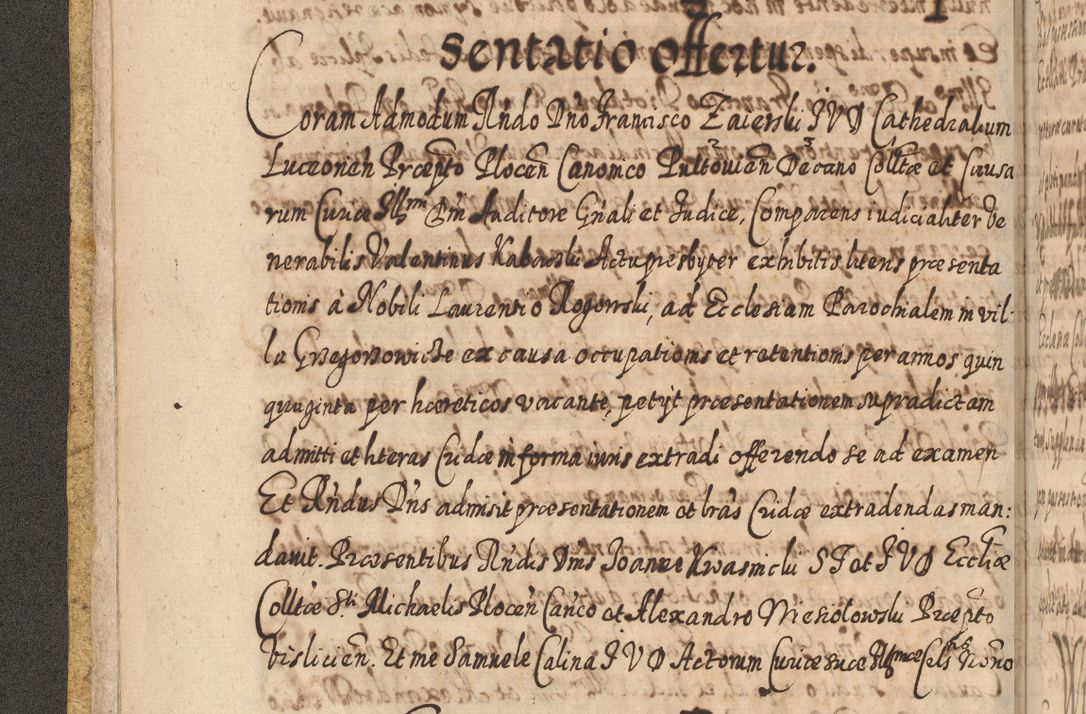 sentatio offertur.
Coram Admodum Rńdo Dńo Francisco Zaierski J V D Cathedralium
Luceoneń Præpto Ploceń Canonico Pultovień Decano Colltæ et Causa
rum Curiæ Illmi Dńi Auditore Gńali et Judice, Comparens iudicialiter Ve
nerabilis Valentinus Kabacski Actu presbyter exhibitis literis præsenta
tionis à Nobili Laurentio Rogowski, ad Ecclesiam Parochialem in vil-
la Gregorzowicze ex causa occupationis et retentionis per annos quin
quaginta per hæreticos vacante, petijt præsentationem supradictam
admitti et literas Cridæ in forma iuris extradi offerendo se ad examen
Et Rńdus Dńs admisit præsentationem et lrás Cridæ extradendas man:
davit. Præsentibus Rńdis Dńis Joanne Kwasnicki S T et J V D Eccliæ
Colltæ Sti Michaelis Ploceń Canco et Alexandro Mesiolowski Præpto
Vislicień. Et me Samuele Calina J V D Actorum Curiæ suæ Illmæ Cels Nono